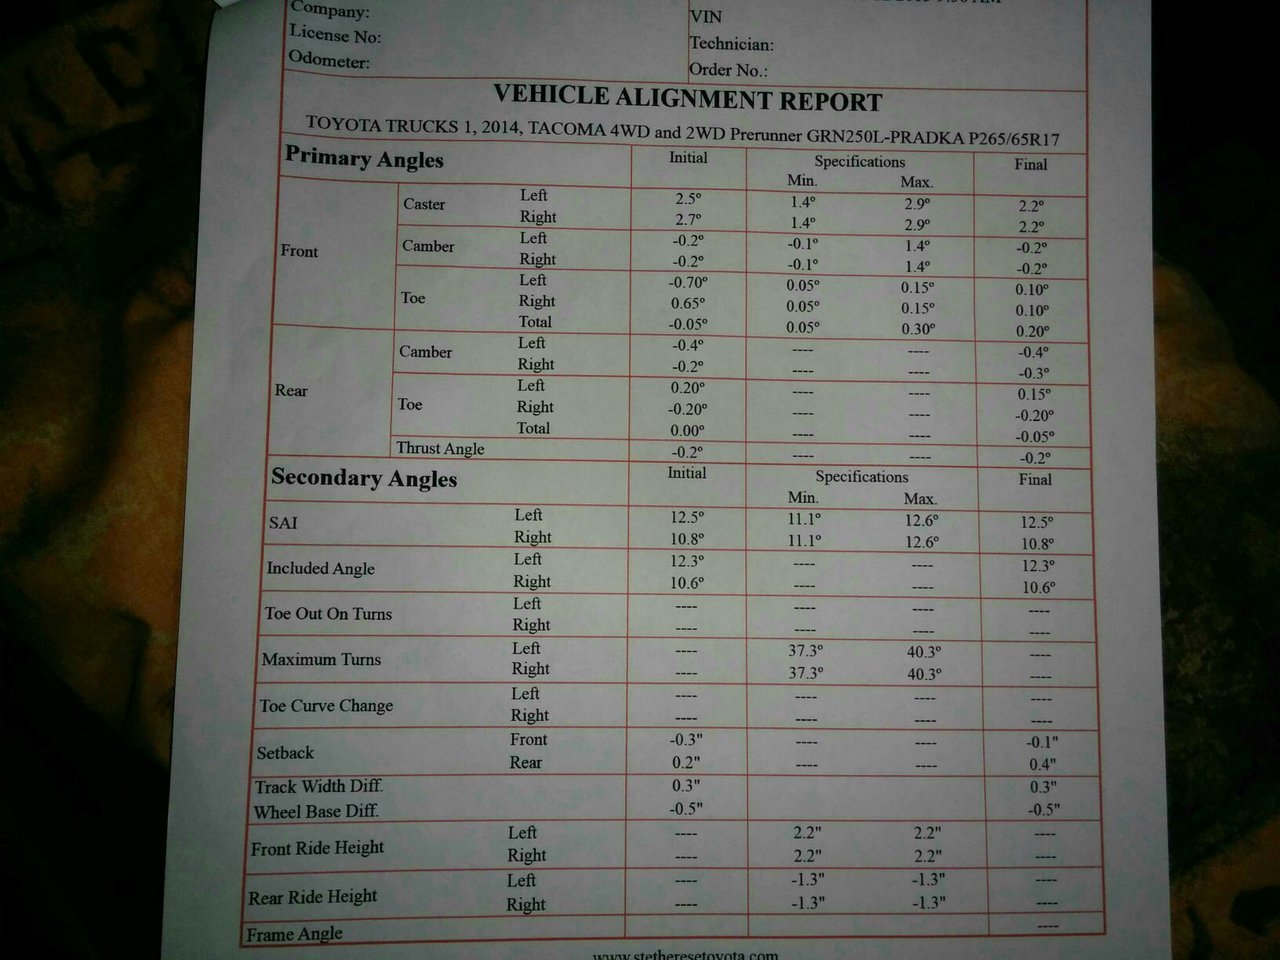 Company:
VIN
License No:
Technician:
Odometer:
Order No.:
VEHICLE ALIGNMENT REPORT
TOYOTA TRUCKS 1, 2014, TACOMA 4WD and 2WD Prerunner GRN250L-PRADKA P265/65R17
Primary Angles Initial Specifications Final
Min. Max.
Front
Caster Left 2.5º 1.4º 2.9º 2.2º
Right 2.7º 1.4º 2.9º 2.2º
Camber Left -0.2º -0.1º 1.4º -0.2º
Right -0.2º -0.1º 1.4º -0.2º
Toe Left -0.70º 0.05º 0.15º 0.10º
Right 0.65º 0.05º 0.15º 0.10º
Total -0.05º 0.05º 0.30º 0.20º
Rear
Camber Left -0.4º ---- ---- -0.4º
Right -0.2º ---- ---- -0.3º
Toe Left 0.20º ---- ---- 0.15º
Right -0.20º ---- ---- -0.20º
Total 0.00º ---- ---- -0.05º
Thrust Angle -0.2º ---- ---- -0.2º
Secondary Angles Initial Specifications Final
Min. Max.
SAI Left 12.5º 11.1º 12.6º 12.5º
Right 10.8º 11.1º 12.6º 10.8º
Included Angle Left 12.3º ---- ---- 12.3º
Right 10.6º ---- ---- 10.6º
Toe Out On Turns Left ---- ---- ---- ----
Right ---- ---- ---- ----
Maximum Turns Left ---- 37.3º 40.3º ----
Right ---- 37.3º 40.3º ----
Toe Curve Change Left ---- ---- ---- ----
Right ---- ---- ---- ----
Setback Front -0.3" ---- ---- -0.1"
Rear 0.2" ---- ---- 0.4"
Track Width Diff. 0.3" 0.3"
Wheel Base Diff. -0.5" -0.5"
Front Ride Height Left ---- 2.2" 2.2" ----
Right ---- 2.2" 2.2" ----
Rear Ride Height Left ---- -1.3" -1.3" ----
Right ---- -1.3" -1.3" ----
Frame Angle ----
www.stetheresetoyota.com